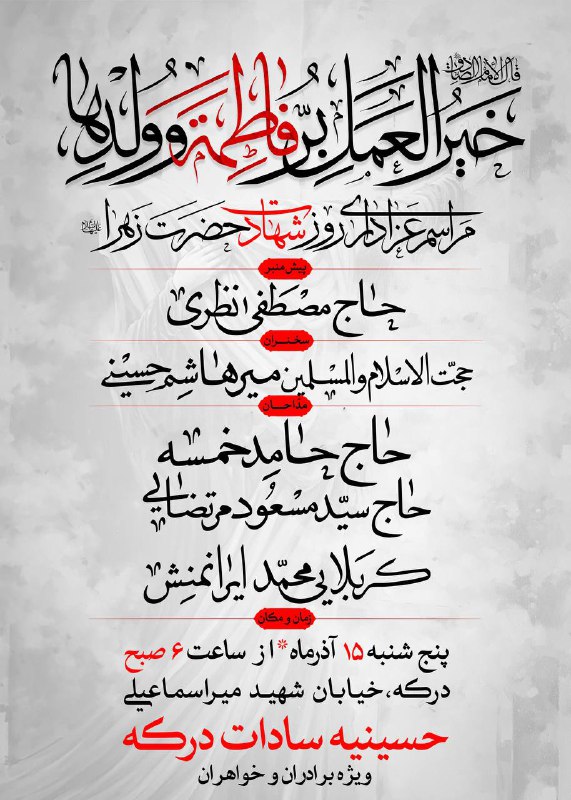 قال الامام الصادق
خیر العمل برّ فاطمة و ولدها
مراسم عزاداری روز شهادت حضرت زهرا
پیش منبر
حاج مصطفی انظری
سخنران
حجت الاسلام والمسلمین میرهاشم حسینی
مداحان
حاج حامد خمسه
حاج سید مسعود مرتضایی
کربلایی محمد ایرانمنش
زمان و مکان
پنج شنبه ۱۵ آذرماه * از ساعت ۶ صبح
درکه، خیابان شهید میراسماعیلی
حسینیه سادات درکه
ویژه برادران و خواهران